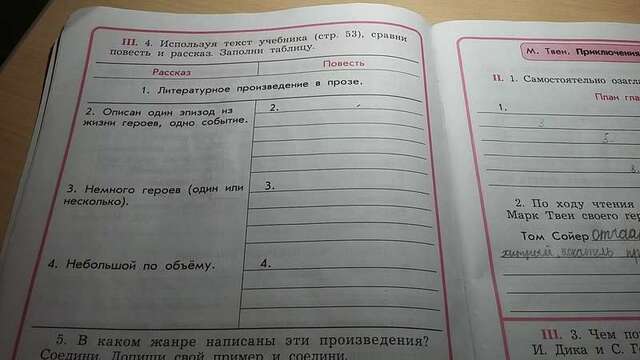 III. 4. Используя текст учебника (стр. 53), сравни
повесть и рассказ. Заполни таблицу.
Рассказ Повесть
1. Литературное произведение в прозе.
2. Описан один эпизод из
жизни героев, одно событие.
2.
3. Немного героев (один или
несколько).
3.
4. Небольшой по объёму.
4.
5. В каком жанре написаны эти произведения?
Соедини. Допиши свой пример и соедини.
М. Твен. Приключения
II. 1. Самостоятельно озагл
План гла
1.
2. По ходу чтения
Марк Твен своего ге
Том Сойер
III. 3. Чем по
И. Дика и С. Г